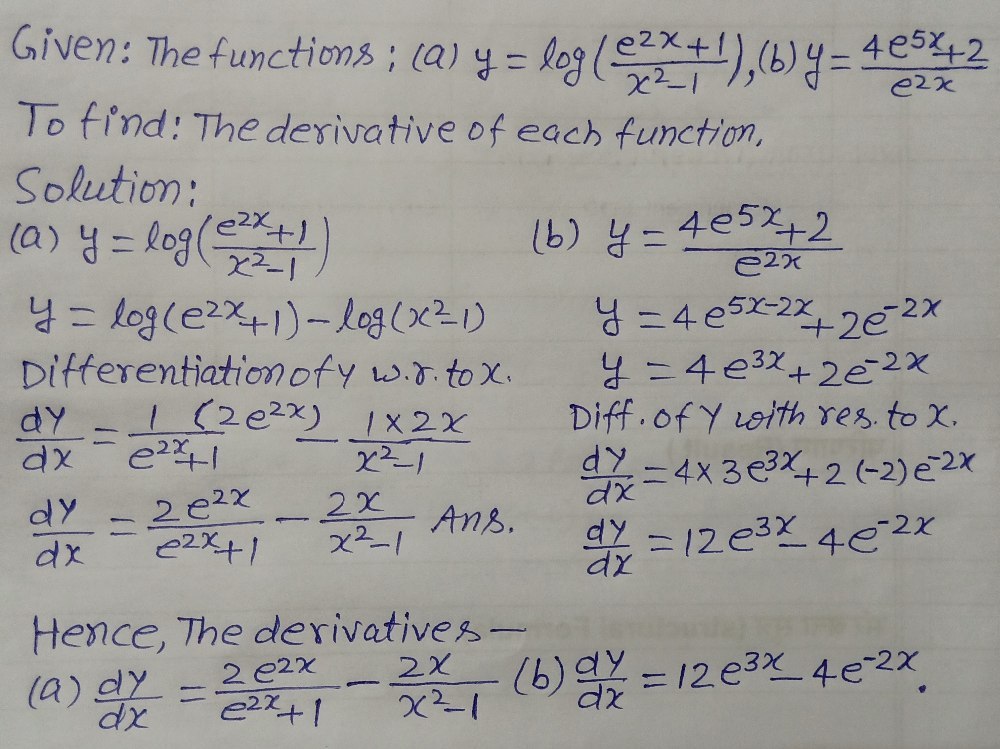 Given: The functions; (a) y = log((e^2x+1)/(x^2-1)), (b) y = (4e^5x+2)/(e^2x)
To find: The derivative of each function.
Solution:
(a) y = log((e^2x+1)/(x^2-1))
y = log(e^2x+1) - log(x^2-1)
Differentiation of y w.r. to x.
dy/dx = 1/(e^2x+1) (2e^2x) - (1×2x)/(x^2-1)
dy/dx = (2e^2x)/(e^2x+1) - (2x)/(x^2-1) Ans.
(b) y = (4e^5x+2)/(e^2x)
y = 4e^5x-2x + 2e^-2x
y = 4e^3x + 2e^-2x
Diff. of y with res. to x.
dy/dx = 4×3e^3x + 2(-2)e^-2x
dy/dx = 12e^3x - 4e^-2x
Hence, The derivatives —
(a) dy/dx = (2e^2x)/(e^2x+1) - (2x)/(x^2-1) (b) dy/dx = 12e^3x - 4e^-2x.